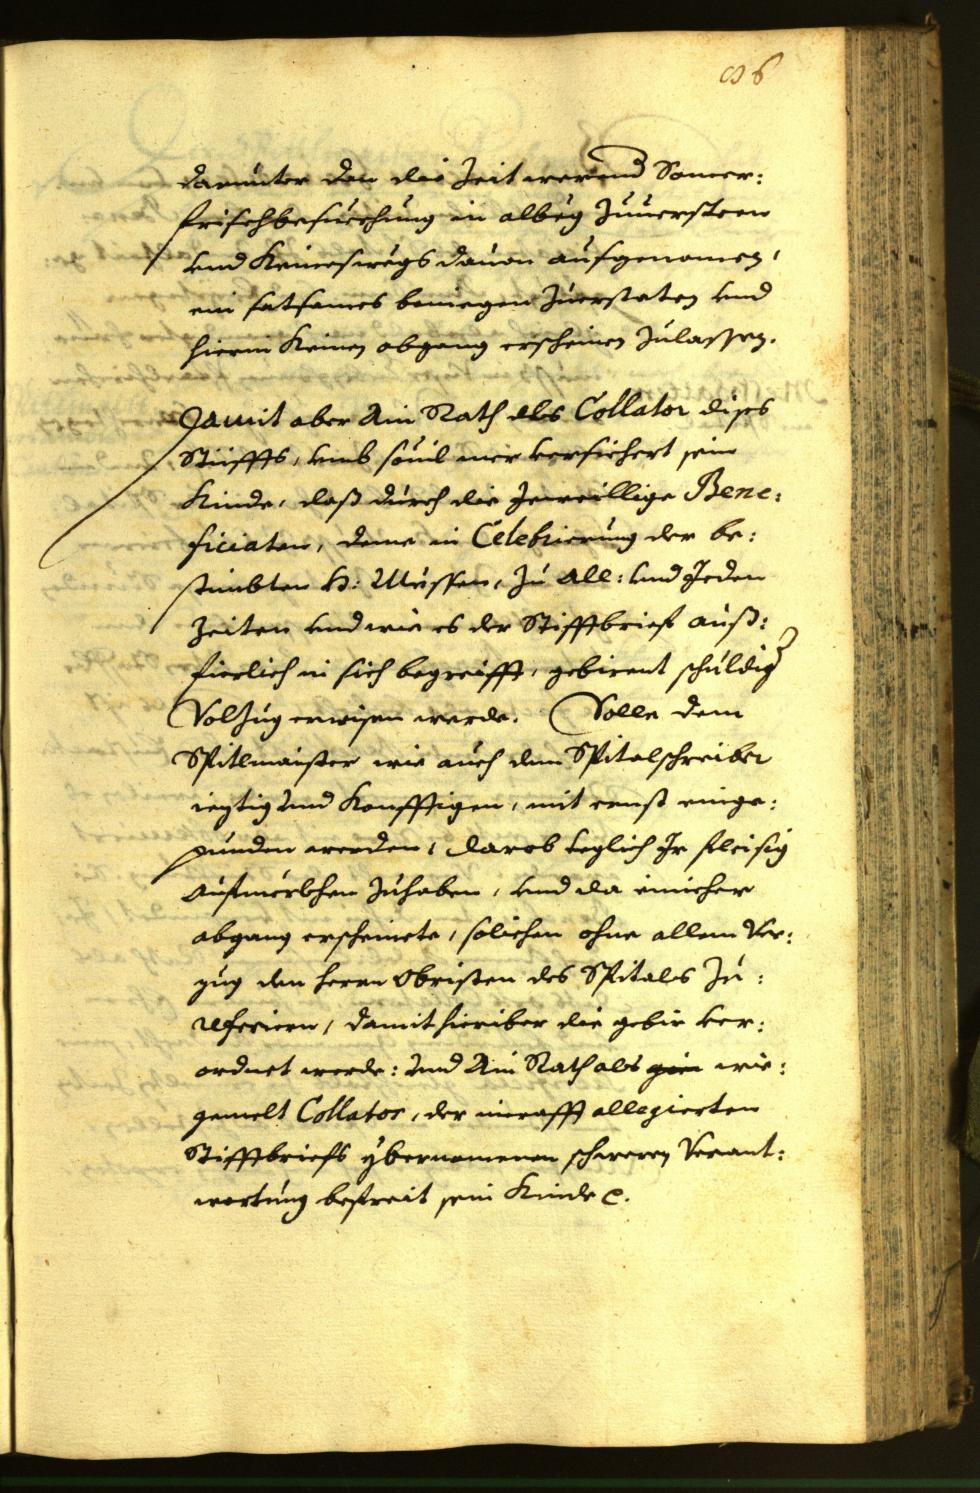 86
darunter den die Zeit werend Somer:
frischbesuechung in albeg Zuuersteen
und Keineswegs dauon aufgenomen,
ein satsames beniegen Zuerstaten und
hierin Keinen abgang erscheinen Zulassen.
Damit aber Ain Rath als Collator dises
Stiffts, umb souil mer versichert sein
Kinde, daß durch die Jeweillige Bene:
ficiaten, deme in Celebrierung der be:
stimbten H: Messen, Zu All: und Jeden
Zeiten und wie es der Stifftbrief auß:
fierlich in sich begreifft, gebirent schuldig
Volzug erwisen werde. Solle dem
Spitlmaister wie auch dem Spitalschreiber
ieztig und Konfftigen, mit ernst einge:
punden werden, darob teglich Ir fleisig
Aufmerkhen Zuhaben, und da einicher
abgang erscheinete, solichen ohne allem Ver:
zug den herrn Obristen des Spitales Zu:
referiern, damit hieriber die gebir ver:
ordnet werde: und Ain Rath als wie:
gemelt Collator, der allegierten
Stifftbriefs ybernomenen schweren Verant:
wortung befreit sein Kinde